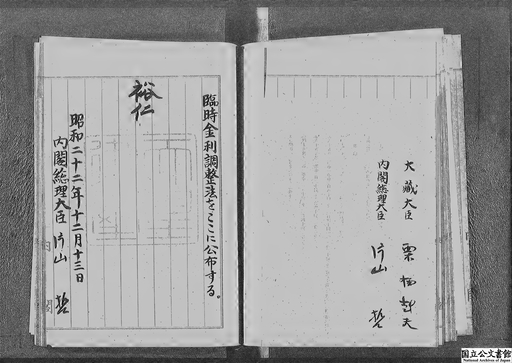 臨時金利調整法をここに公布する。
裕仁
昭和二十二年十二月十三日
内閣総理大臣 片山 哲
大蔵大臣 栗栖赳夫
内閣総理大臣 片山 哲
国立公文書館
National Archives of Japan